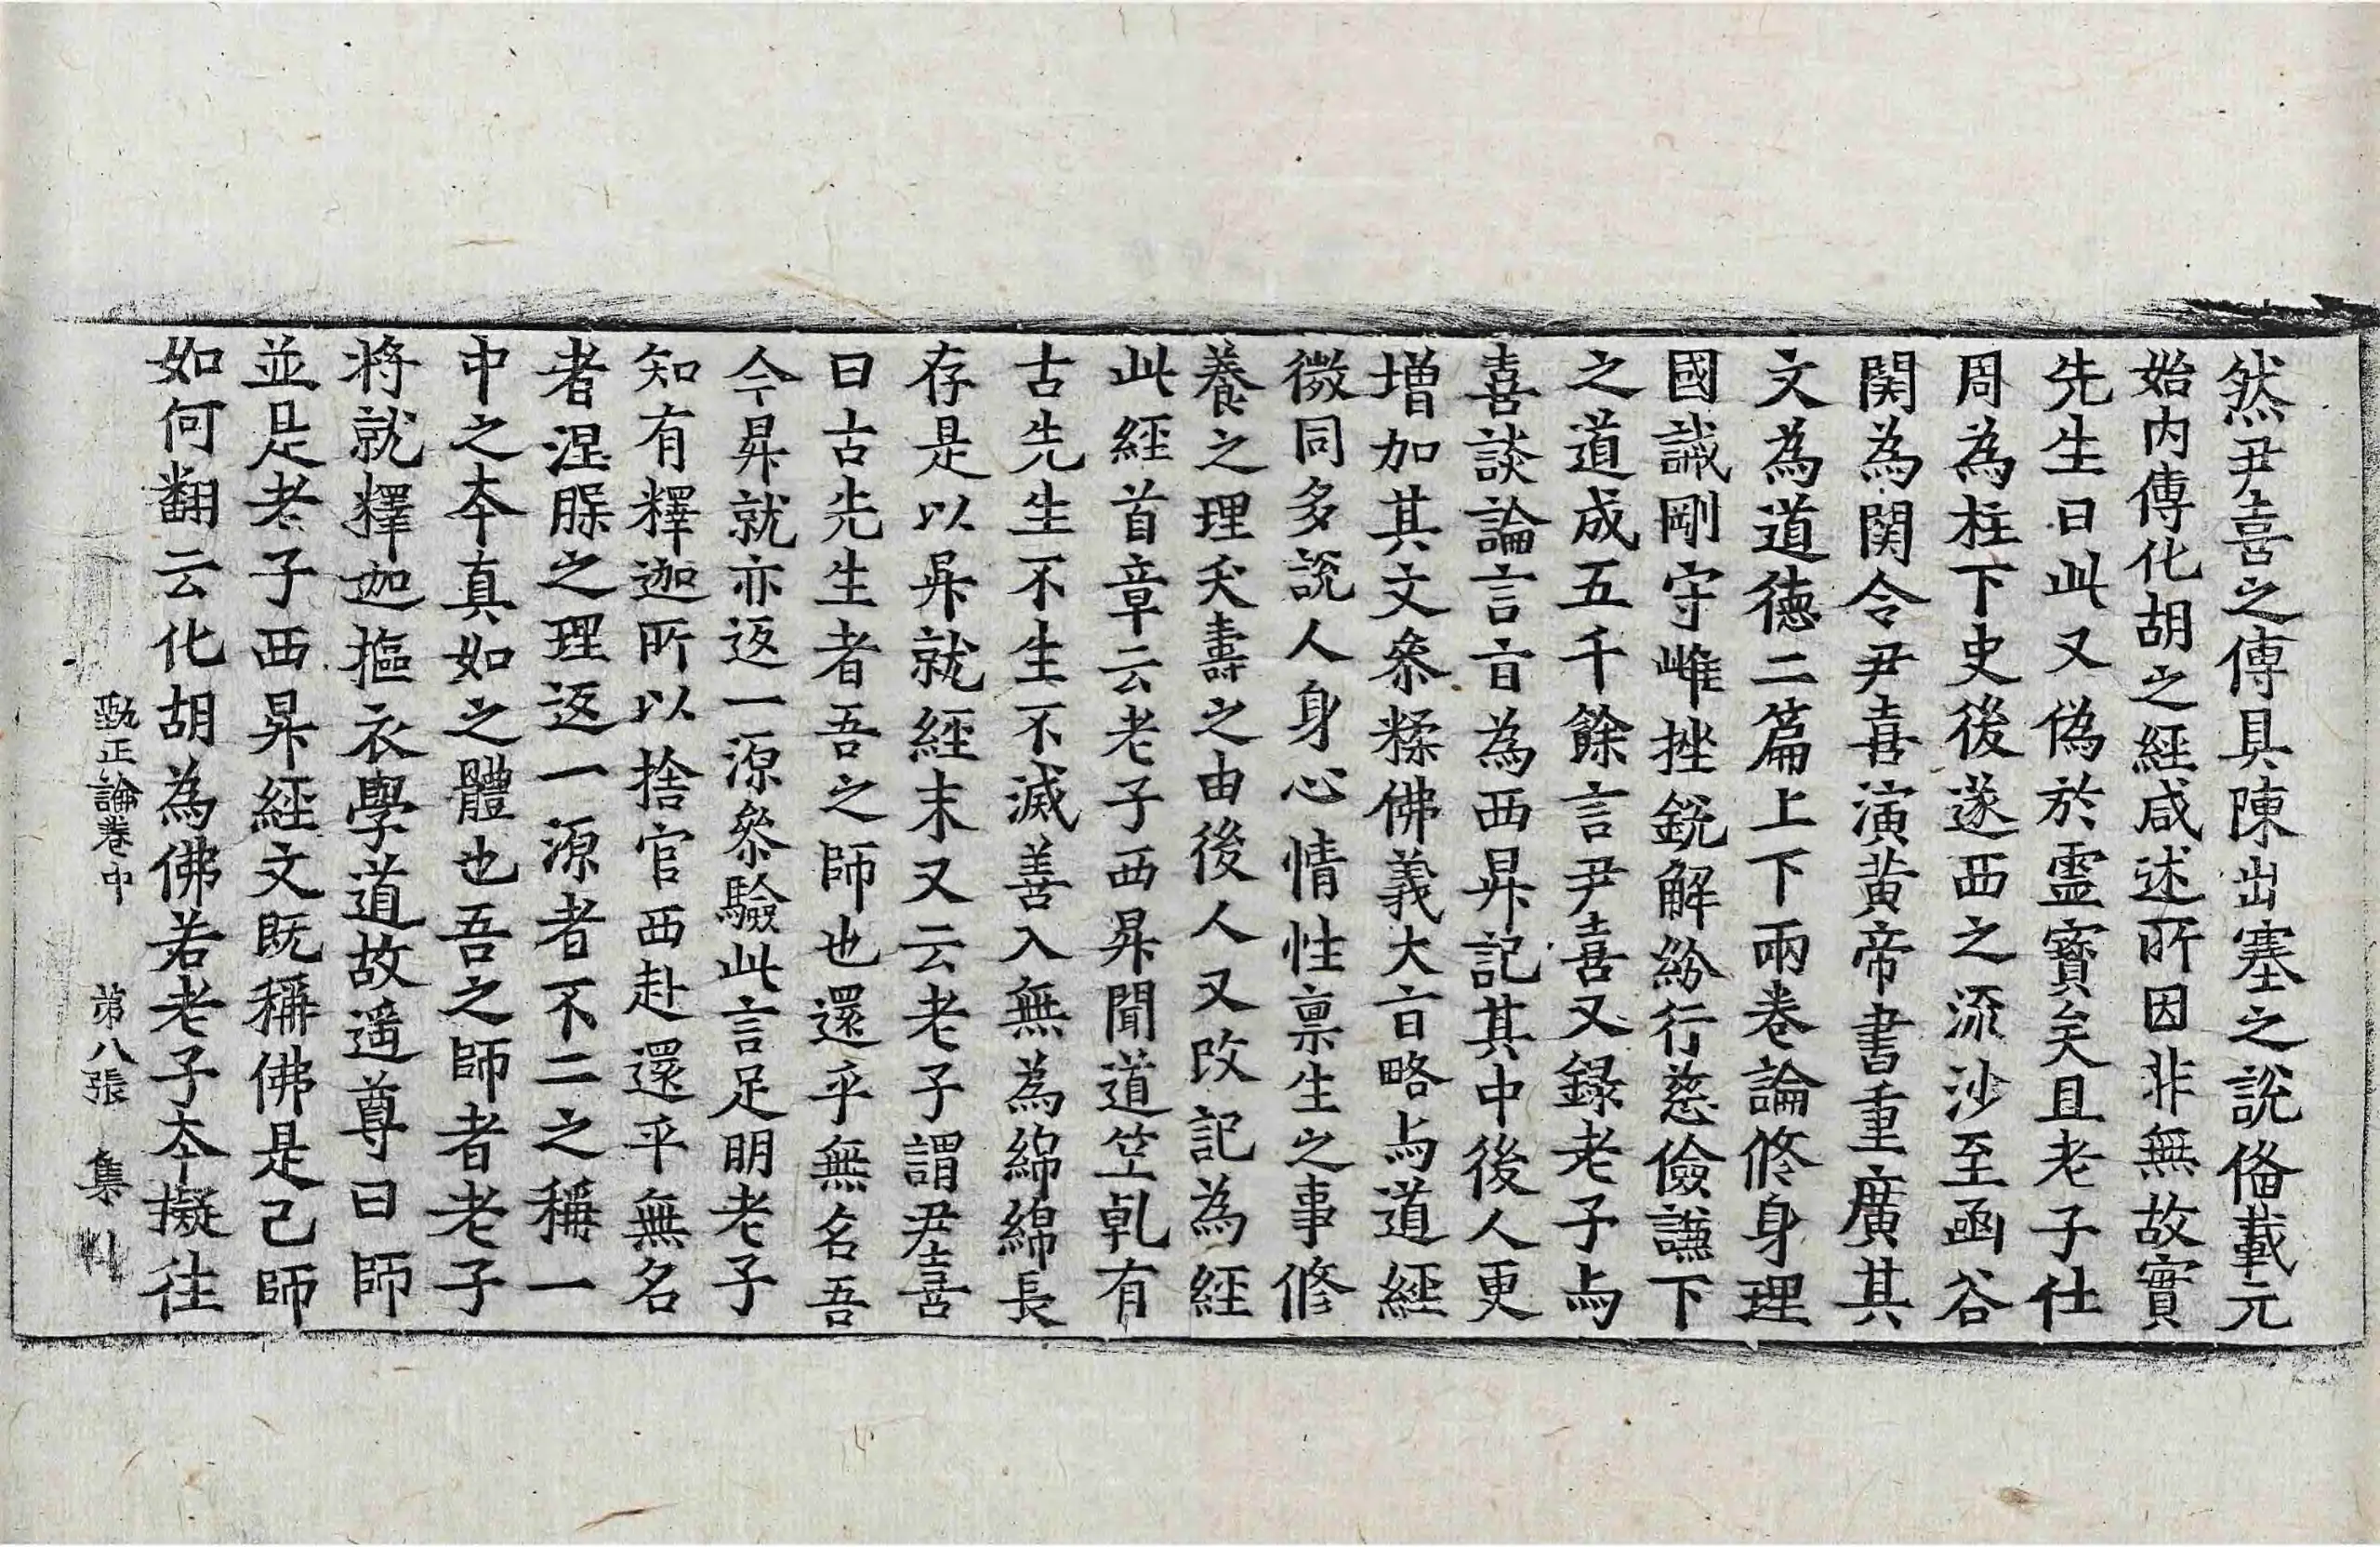 然尹喜之傳具陳出塞之說俻載元
始內傳化胡之經咸述所因非無故實
先生曰此又偽於靈寶矣且老子仕
周為柱下史後遂西之流沙至函谷
関為関令尹喜演黃帝書重廣其
文為道德二篇上下兩卷論修身理
國誡剛守雌挫銳解紛行慈儉謙下
之道成五千餘言尹喜又錄老子与
喜談論言㫖為西昇記其中後人更
增加其文叅糅佛義大㫖略与道經
微同多說人身心情性禀生之事修
養之理夭壽之由後人又改記為經
此經首章云老子西昇聞道竺乹有
古先生不生不滅善入無為綿綿長
存是以昇就經末又云老子謂尹喜
曰古先生者吾之師也還乎無名吾
今昇就亦返一源叅驗此言足明老子
知有釋迦所以捨官西赴還乎無名
者涅槃之理返一源者不二之稱一
中之夲真如之體也吾之師者老子
將就釋迦摳衣學道故遥尊曰師
並是老子西昇經文既稱佛是己師
如何翻云化胡為佛若老子夲擬往
甄正論卷中　苐八張　集